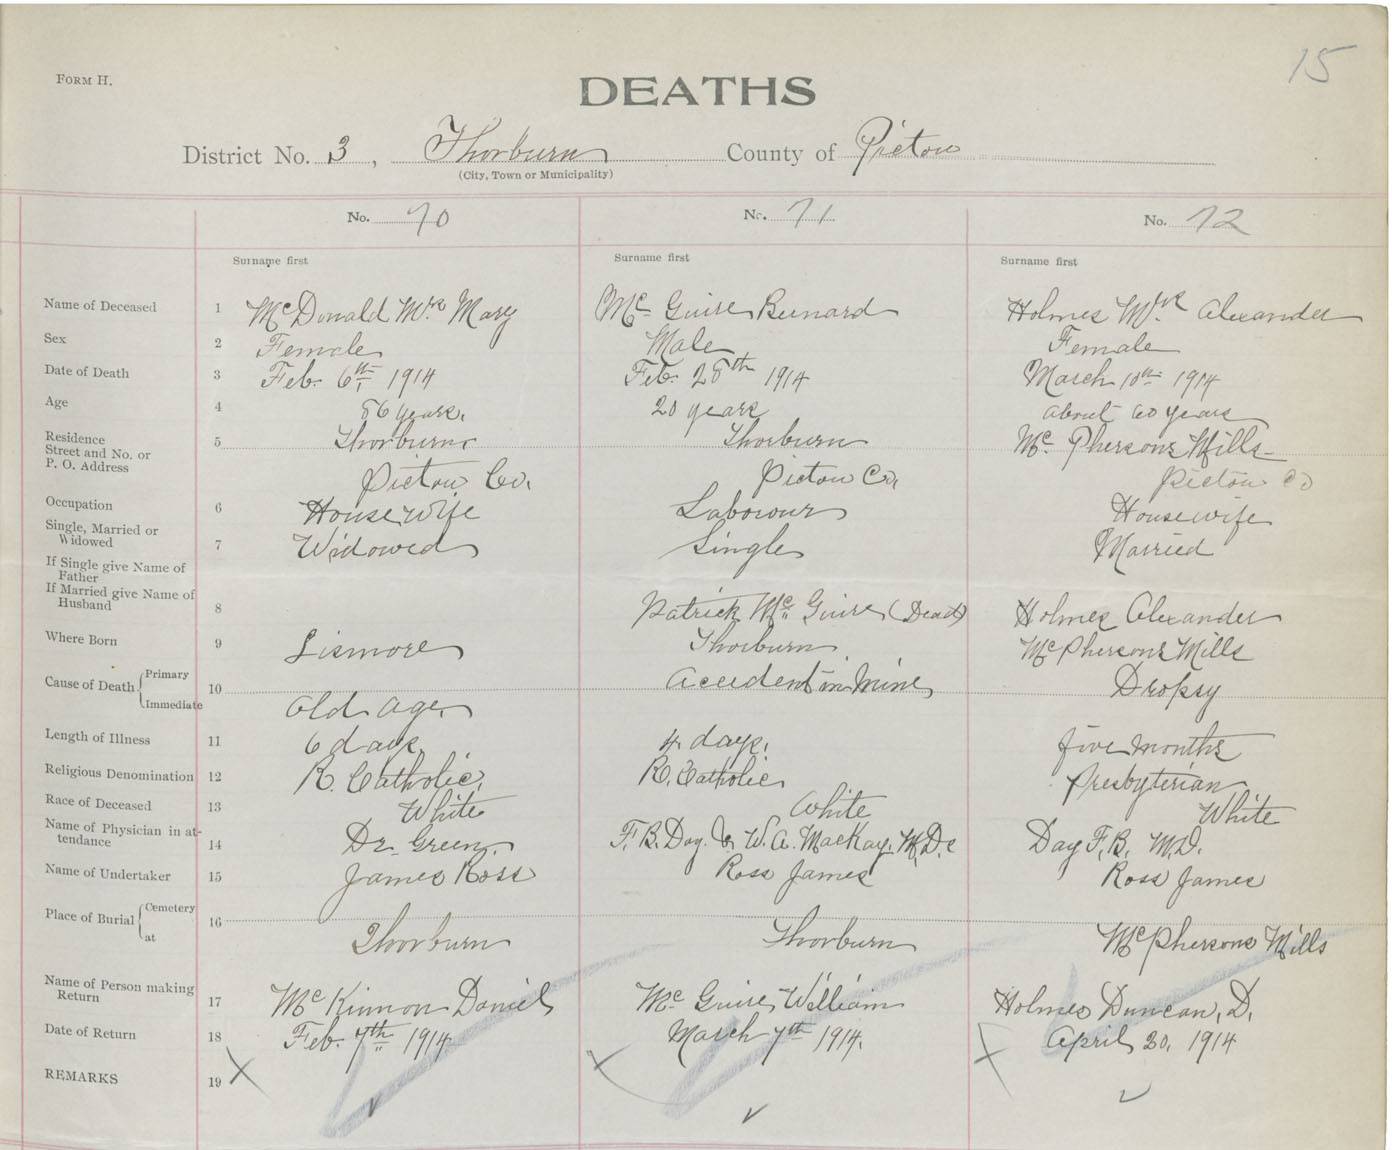 15
FORM H.
DEATHS
District No. 3, Thorburn County of Pictou
(City, Town or Municipality)
No. 70 No. 71 No. 72
Surname first Surname first Surname first
Name of Deceased 1 McDonald Mrs Mary McGuire Bernard Holmes Mrs Alexander
Sex 2 Female Male Female
Date of Death 3 Feb. 6th 1914 Feb. 28th 1914 March 10th 1914
Age 4 86 years. 20 years about 60 years
Residence
Street and No. or 5 Thorburn Thorburn McPhersons Mills
P. O. Address Pictou Co. Pictou Co. Pictou Co
Occupation 6 House wife Labourer Housewife
Single, Married or
Widowed 7 Widowed Single Married
If Single give Name of
Father
If Married give Name of
Husband 8 Patrick McGuire (Dead) Holmes Alexander
Where Born 9 Lismore Thorburn McPhersons Mills
Cause of Death { Primary 10 Accident in Mine Dropsy
Immediate Old Age
Length of Illness 11 6 days 4 days. five months
Religious Denomination 12 R. Catholic. R. Catholic Presbyterian
Race of Deceased 13 White White White
Name of Physician in at-
tendance 14 Dr. Green. F. B. Day. & W. A. MacKay. M.Ds Day F. B. M.D.
Name of Undertaker 15 James Ross Ross James Ross James
Place of Burial { Cemetery 16
at Thorburn Thorburn McPhersons Mills
Name of Person making
Return 17 McKinnon Daniel McGuire William Holmes Duncan, D.
Date of Return 18 Feb. 7th 1914 March 7th 1914. April 20, 1914
REMARKS 19